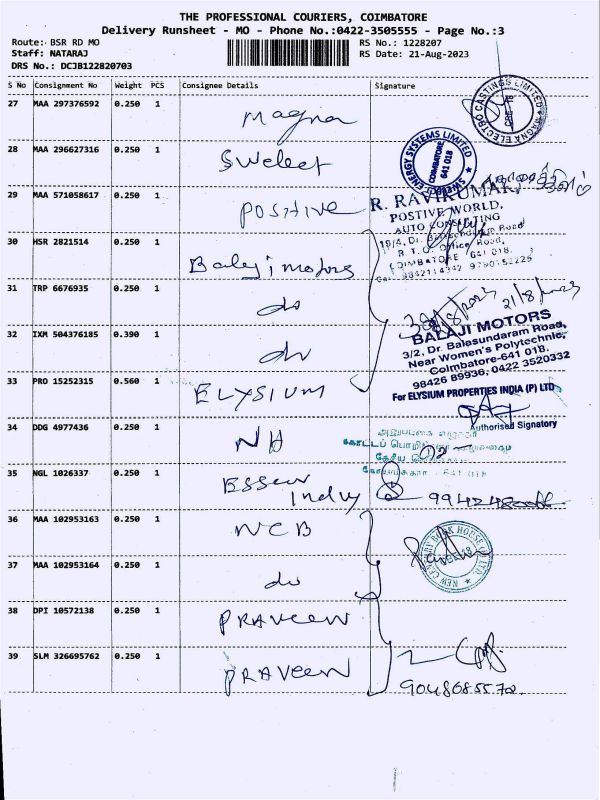 THE PROFESSIONAL COURIERS, COIMBATORE
Delivery Runsheet - MO - Phone No.:0422-3505555 - Page No.:3
Route: BSR RD MO RS No.: 1228207
Staff: NATARAJ RS Date: 21-Aug-2023
DRS No.: DCJB122820703
S No Consignment No Weight PCS Consignee Details Signature
27 MAA 297376592 0.250 1 Magna
28 MAA 296627316 0.250 1 Swelect
29 MAA 571058617 0.250 1 POSITIVE
30 HSR 2821514 0.250 1 Balaji motors
31 TRP 6676935 0.250 1 do
32 IXM 504376185 0.390 1 do
33 PRO 15252315 0.560 1 ELYSIUM
34 DDG 4977436 0.250 1 NH
35 NGL 1026337 0.250 1 Essen Indu
36 MAA 102953163 0.250 1 NCB
37 MAA 102953164 0.250 1 do
38 DPI 10572138 0.250 1 PRAVEEN
39 SLM 326695762 0.250 1 PRAVEEN
MAGNA ELECTRO CASTINGS LIMITED
SWELECT ENERGY SYSTEMS LIMITED
COIMBATORE
641 018
R. RAVIKUMAR,
POSTIVE WORLD,
AUTO CONSULTING
19/4, Dr. Balasundaram Road
R. T. O. Office Road,
COIMBATORE 641 018.
21/8/2023
BALAJI MOTORS
3/2, Dr. Balasundaram Road,
Near Women's Polytechnic,
Coimbatore-641 018.
98426 89936, 0422 3520332
For ELYSIUM PROPERTIES INDIA (P) LTD
Authorised Signatory
NEW CENTURY BOOK HOUSE (P) LTD